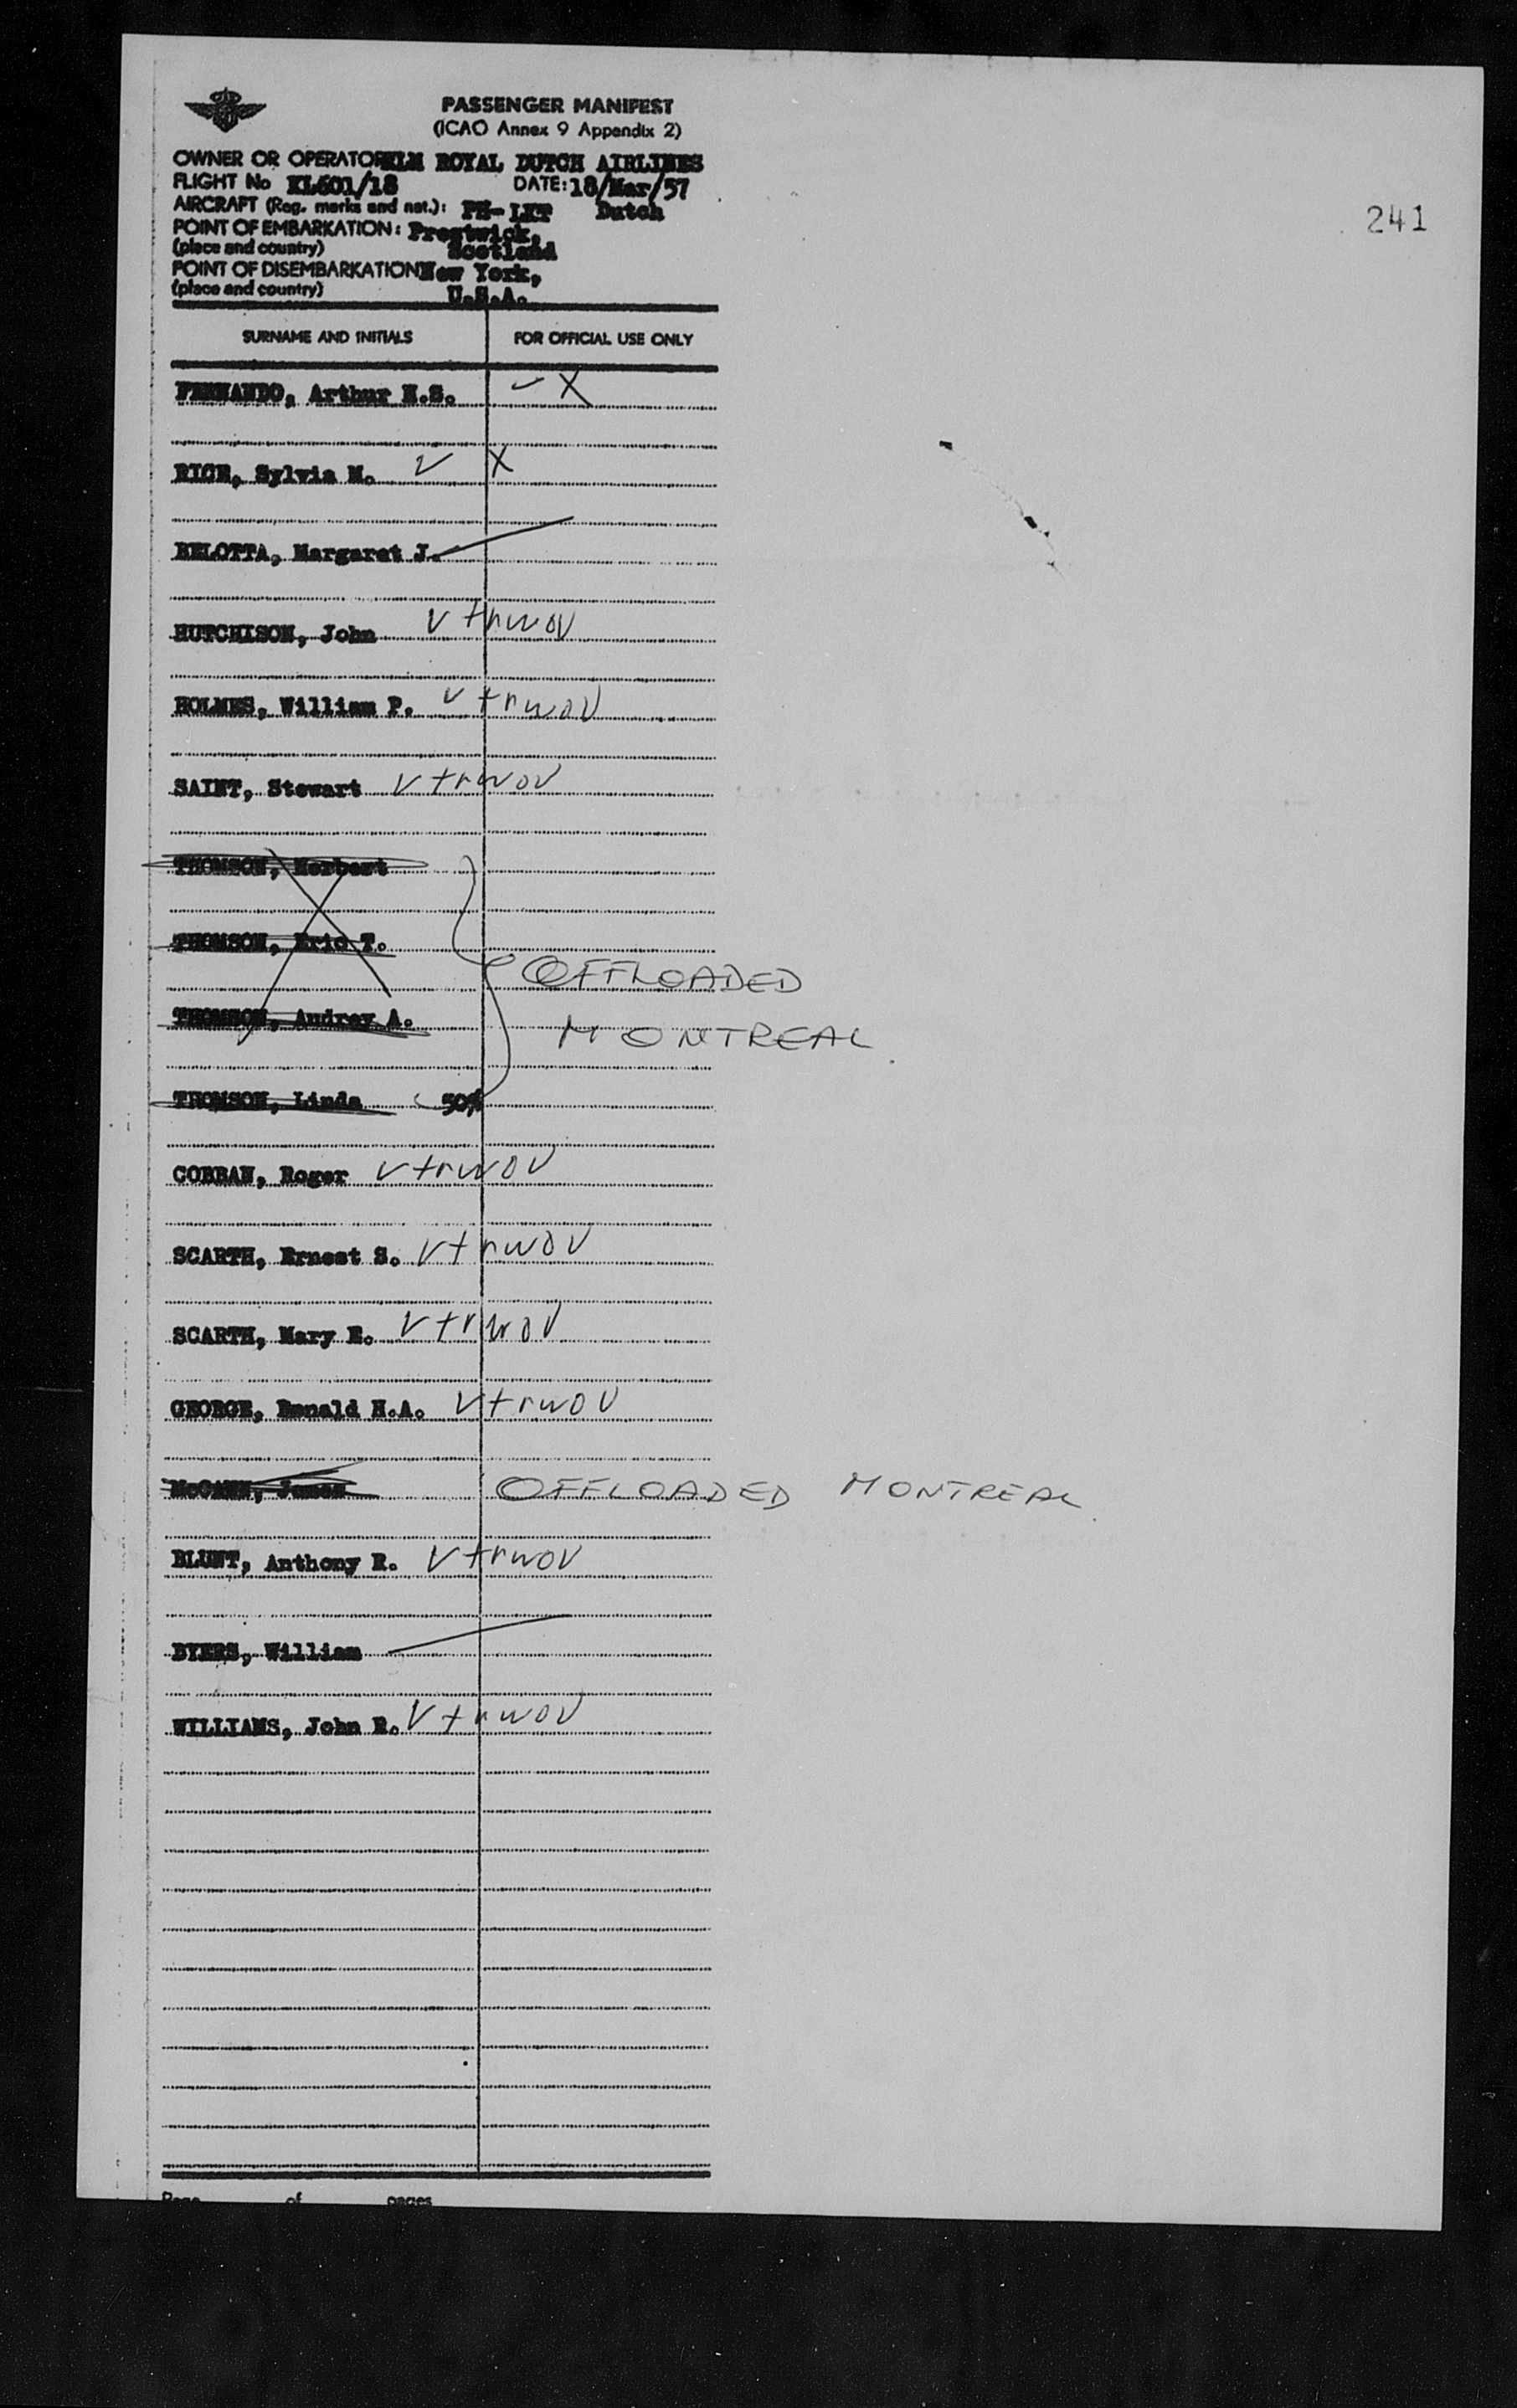 PASSENGER MANIFEST
(ICAO Annex 9 Appendix 2)
OWNER OR OPERATOR KLM ROYAL DUTCH AIRLINES
FLIGHT No KL601/18 DATE: 18/Mar/57
AIRCRAFT (Reg. marks and nat.): PH- Dutch
241
POINT OF EMBARKATION: Prestwick,
(place and country) Scotland
POINT OF DISEMBARKATION New York,
(place and country) U.S.A.
SURNAME AND INITIALS FOR OFFICIAL USE ONLY
FERNANDO, Arthur N.S. X
Sylvia M. X
BELOTTA, Margaret J.
HUTCHISON, John V trwov
HOLMES, William P. V trwov
SAINT, Stewart V trwov
THOMSON, Herbert
THOMSON, Eric T.
OFFLOADED
THOMSON, Audrey A.
MONTREAL
THOMSON, Linda 50%
COBBAN, Roger V trwov
SCARTH, Ernest S. V trwov
SCARTH, Mary E. V trwov
GEORGE, Ronald H.A. V trwov
McCANN, James OFFLOADED MONTREAL
BLUNT, Anthony R. V trwov
BYERS, William
WILLIAMS, John R. V trwov
Page of pages